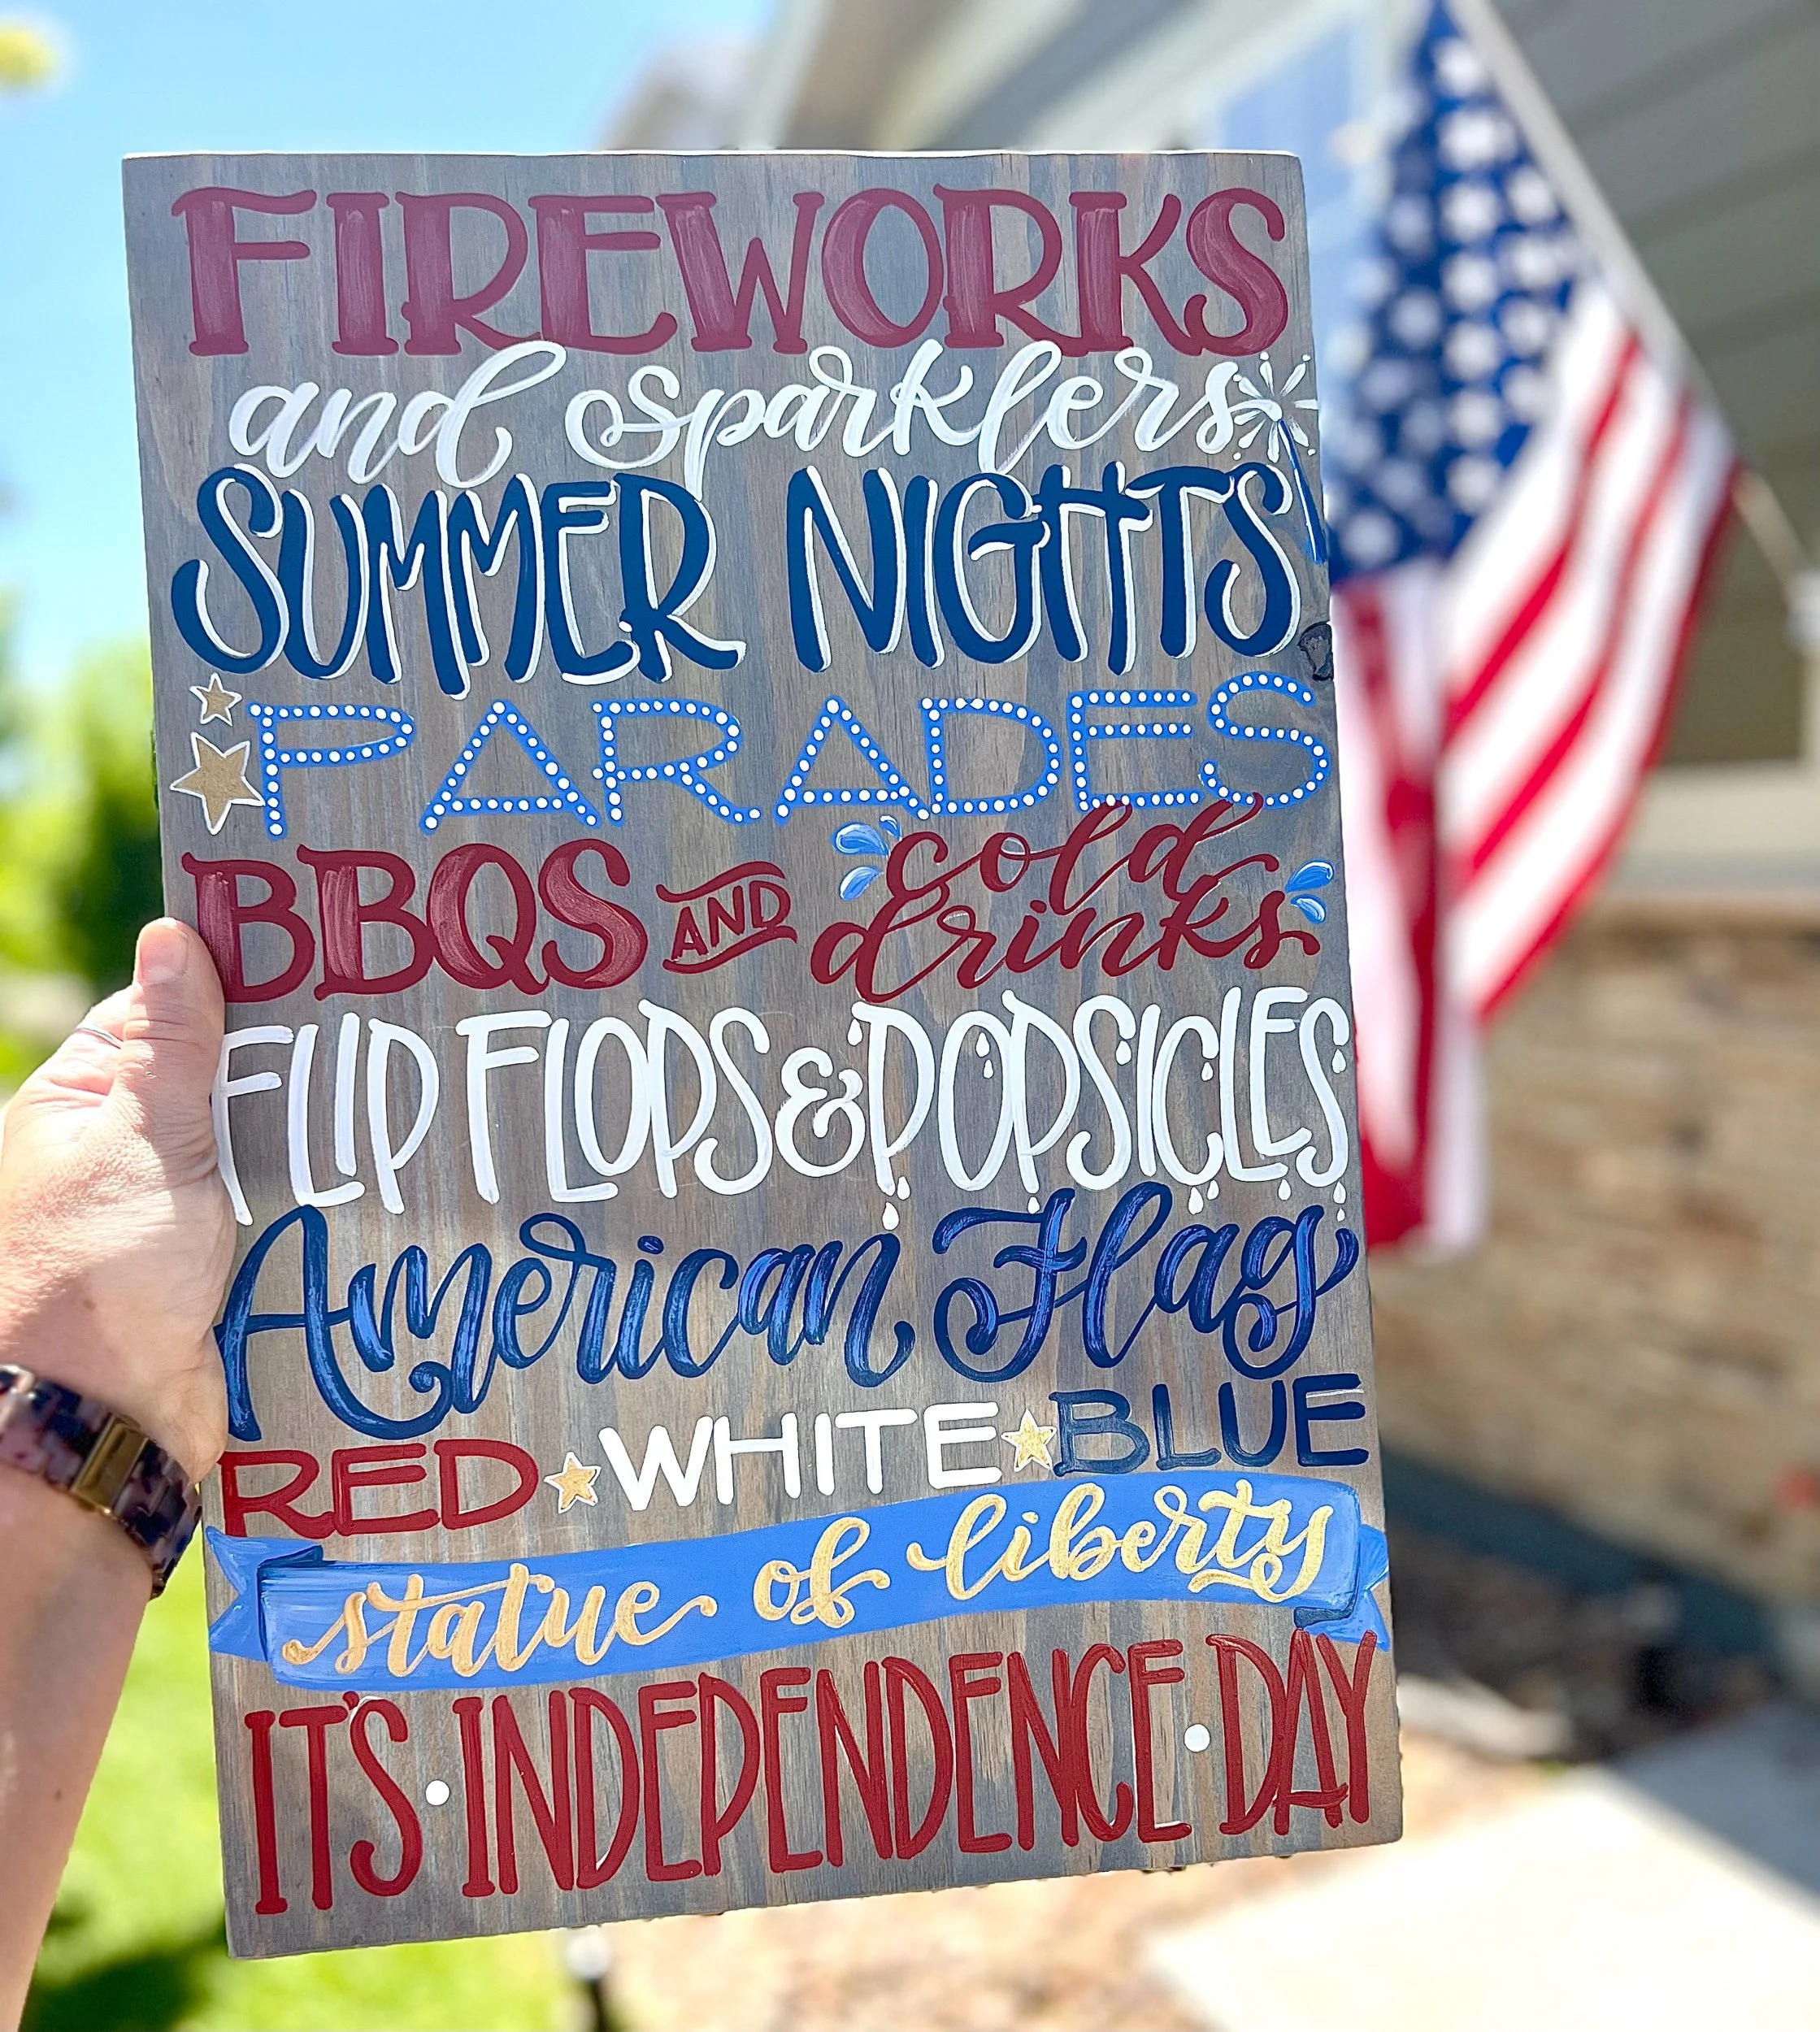 FIREWORKS
and sparklers
SUMMER NIGHTS
PARADES
BBQS AND cold drinks
FLIP FLOPS & POPSICLES
American Flag
RED WHITE BLUE
statue of liberty
IT'S · INDEPENDENCE · DAY